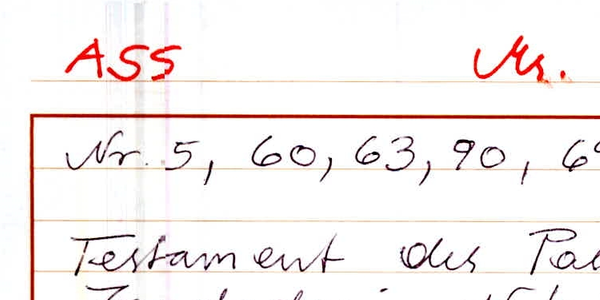 ASS Nr.
Nr. 5, 60, 63, 90,
Testament des